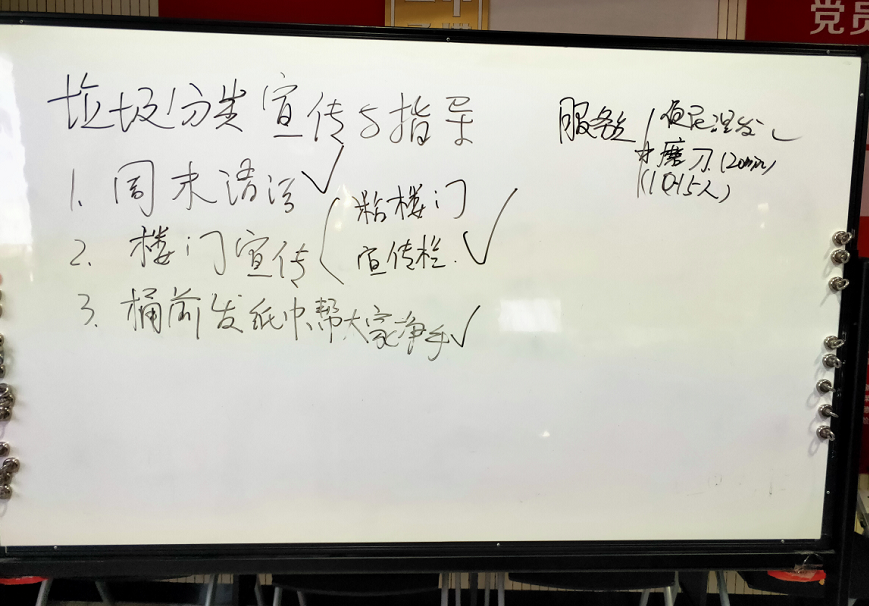 党员
垃圾分类宣传与指导
1. 周末清洁 ✓
2. 楼门宣传 ( 粘楼门
宣传栏. ✓
3. 桶前发纸巾帮大家净手 ✓
服务 便民理发 ✓
磨刀 (20min)
(10-15人)